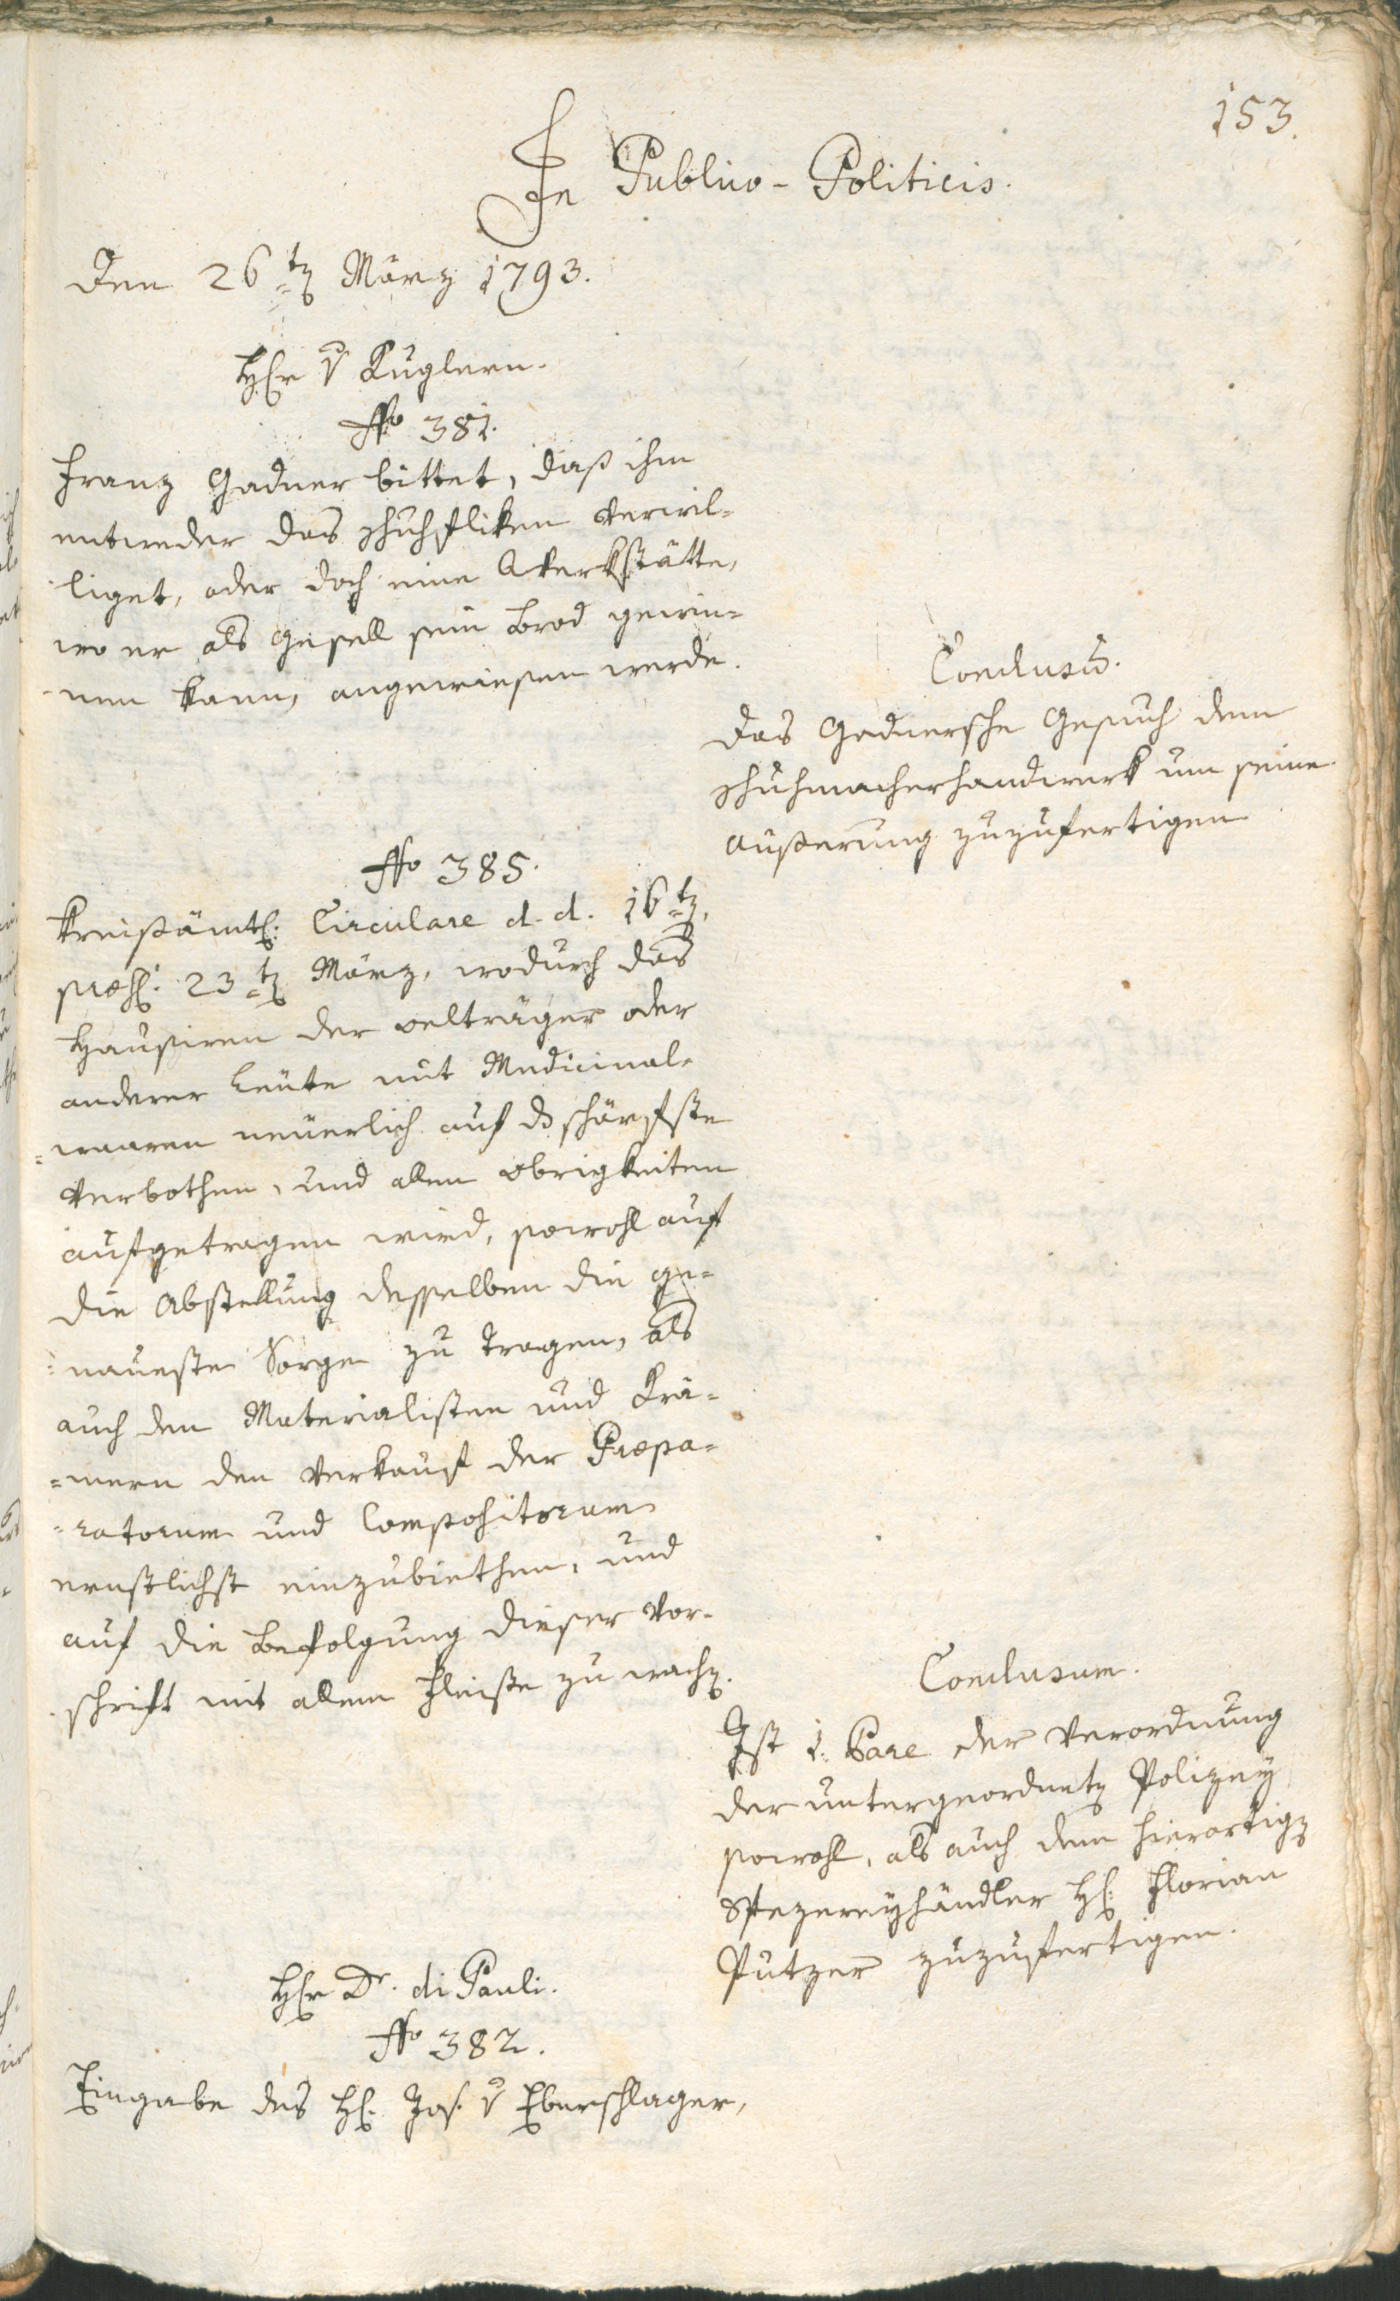 153.
In Publico-Politicis.
Den 26ten März 1793.
Hr v Kuglern.
No 381.
Franz Gadner bittet, daß ihm
entweder das Schuhfliken verwil-
liget, oder doch eine Werkstätte,
wo er als Gesell sein Brod gewin-
nen kann, angewiesen werde.
Conclusum.
Das Gadnersche Gesuch dem
Schuhmacherhandwerk um seine
Äußerung zuzufertigen
No 385.
Kreisämtl: Circulare d. d. 16ten,
præs: 23ten März, wodurch das
Hausiren der Oelträger oder
anderer Leute mit Medicinal-
=waaren neuerlich auf das schärfste
verbothen, und allen Obrigkeiten
aufgetragen wird, sowohl auf
die Abstellung desselben die ge-
=naueste Sorge zu tragen, als
auch den Materialisten und Krä-
=mern den Verkauf der Præpa-
=ratorum und Compositorum
ernstlichst einzubiethen, und
auf die Befolgung dieser Vor-
schrift mit allem Fleiße zu wachen.
Conclusum.
Ist 1. Pare der Verordnung
der untergeordneten Polizey
sowohl, als auch dem hierortigen
Spezereyhändler H: Florian
Putzer zuzufertigen.
Hr Dr. di Pauli.
No 382.
Eingabe des H: Jos. v Eberschlager,